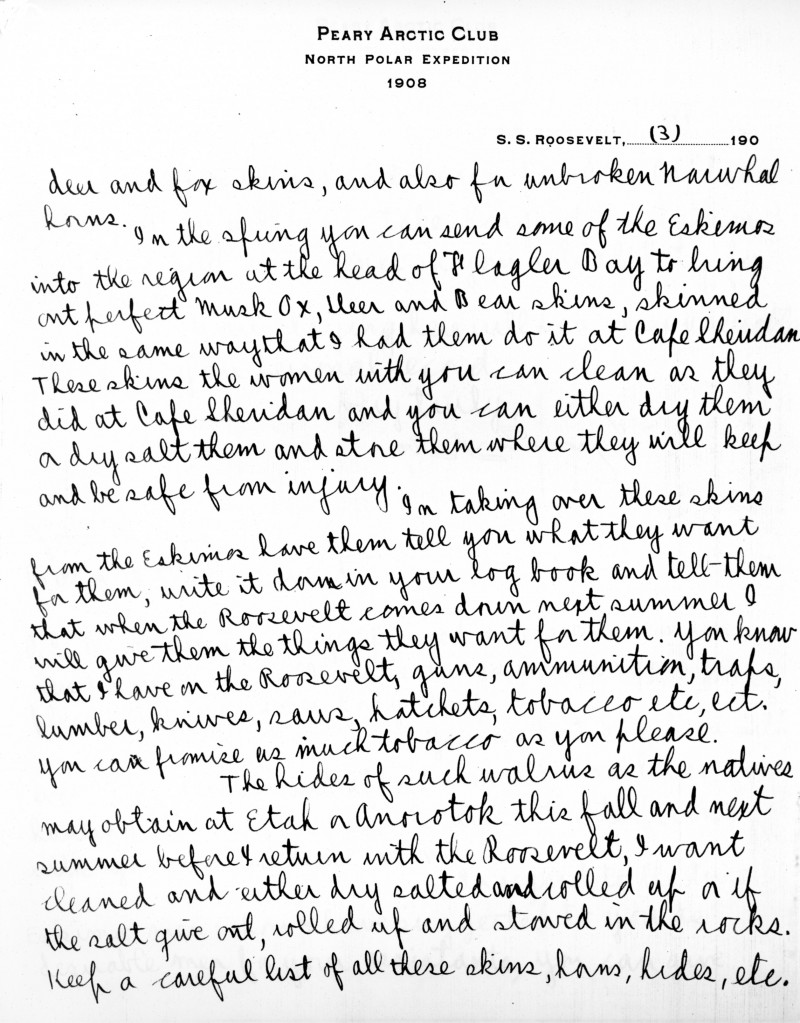 PEARY ARCTIC CLUB
NORTH POLAR EXPEDITION
1908
S. S. ROOSEVELT, (3) 190
deer and fox skins, and also for unbroken Narwhal
horns.
In the spring you can send some of the Eskimos
into the region at the head of Flagler Bay to bring
out perfect Musk Ox, Deer and Bear skins, skinned
in the same way that I had them do it at Cape Sheridan
These skins the women with you can clean as they
did at Cape Sheridan and you can either dry them
or dry salt them and store them where they will keep
and be safe from injury.
In taking over these skins
from the Eskimos have them tell you what they want
for them, write it down in your log book and tell them
that when the Roosevelt comes down next summer I
will give them the things they want for them. You know
that I have on the Roosevelt, guns, ammunition, traps,
lumber, knives, saws, hatchets, tobacco etc, ect.
You can promise as much tobacco as you please.
The hides of such walrus as the natives
may obtain at Etah or Anorotok this fall and next
summer before I return with the Roosevelt, I want
cleaned and either dry salted and rolled up or if
the salt give out, rolled up and stowed in the rocks.
Keep a careful list of all these skins, horns, hides, etc.